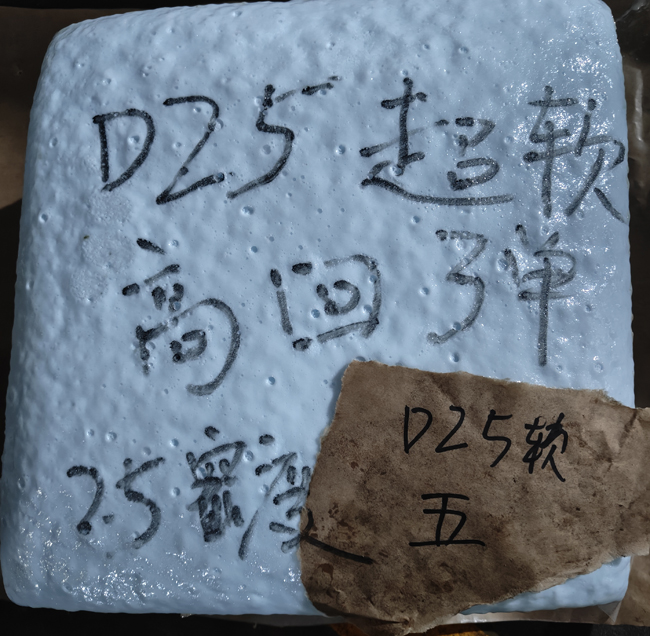 D25 超软
高回弹
25密度
D25软
五